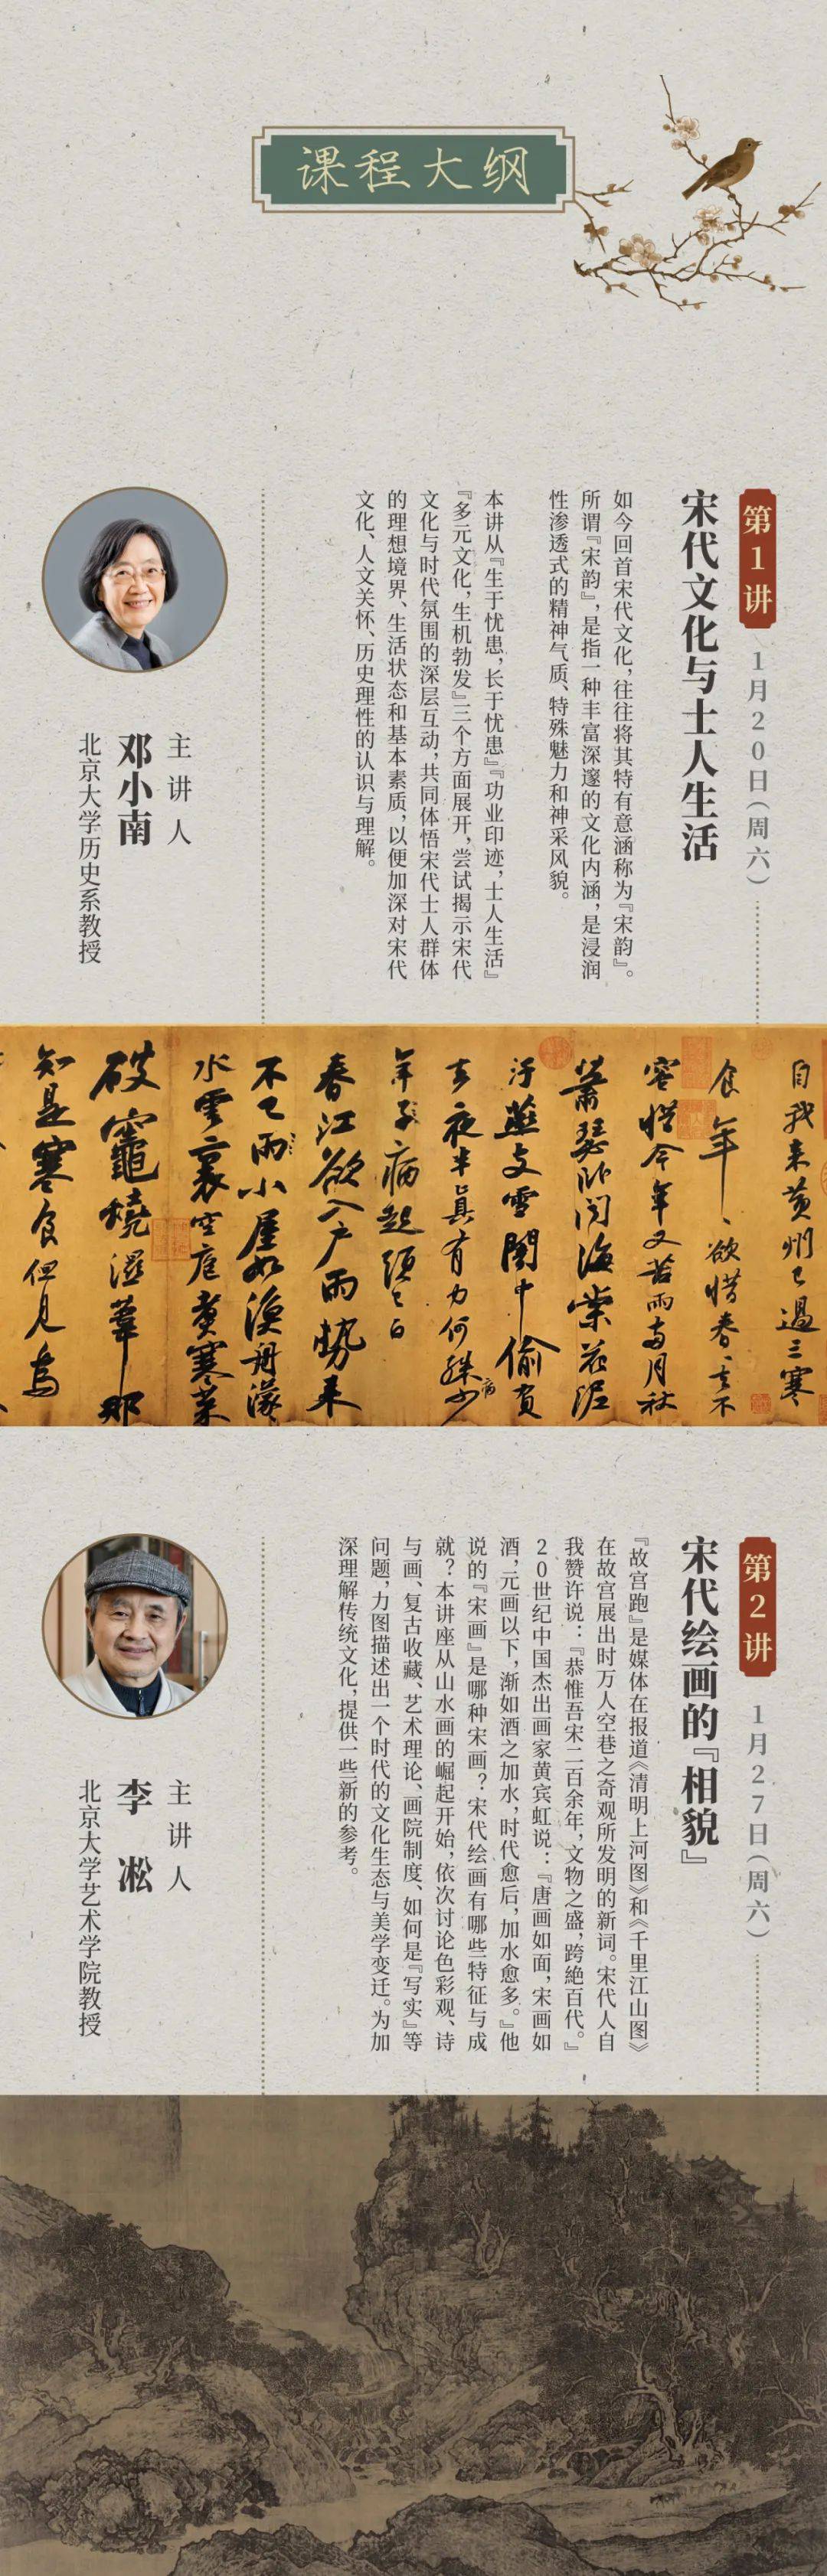 课程大纲
第1讲
1月20日(周六)
宋代文化与士人生活
如今回首宋代文化,往往将其特有意涵称为『宋韵』。
所谓『宋韵』,是指一种丰富深邃的文化内涵,是浸润
性渗透式的精神气质、特殊魅力和神采风貌。
本讲从『生于忧患,长于忧患』『功业印迹,士人生活』
『多元文化,生机勃发』三个方面展开,尝试揭示宋代
文化与时代氛围的深层互动,共同体悟宋代士人群体
的理想境界、生活状态和基本素质,以便加深对宋代
文化、人文关怀、历史理性的认识与理解。
主讲人
邓小南
北京大学历史系教授
自我来黄州已過三寒
食年〻欲惜春〻去不
容惜今年又苦雨兩月秋
蕭瑟卧聞海棠花泥
汙燕支雪闇中偷負
去夜半真有力何殊少
年子病起頭已白
春江欲入户雨勢來
不已雨小屋如漁舟濛〻
水雲裏空庖煮寒菜
破竈燒濕葦那
知是寒食但見烏
第2讲
1月27日(周六)
宋代绘画的『相貌』
『故宫跑』是媒体在报道《清明上河图》和《千里江山图》
在故宫展出时万人空巷之奇观所发明的新词。宋代人自
我赞许说:『恭惟吾宋二百余年,文物之盛,跨绝百代。』
20世纪中国杰出画家黄宾虹说:『唐画如面,宋画如
酒,元画以下,渐如酒之加水,时代愈后,加水愈多。』他
说的『宋画』是哪种宋画?宋代绘画有哪些特征与成
就?本讲座从山水画的崛起开始,依次讨论色彩观、诗
与画、复古收藏、艺术理论、画院制度、如何是『写实』等
问题,力图描述出一个时代的文化生态与美学变迁。为加
深理解传统文化,提供一些新的参考。
主讲人
李凇
北京大学艺术学院教授